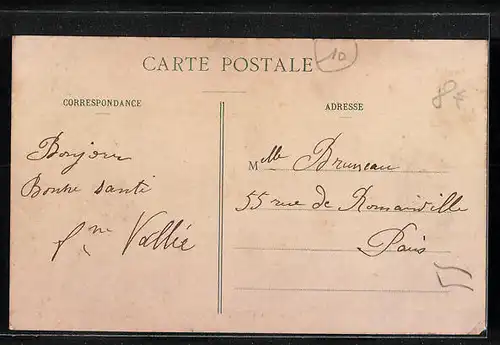 10
CARTE POSTALE
8€
CORRESPONDANCE
ADRESSE
Bonjour
Bonne santé
Vallié
Mlle Bruneau
55 rue de Romainville
Paris